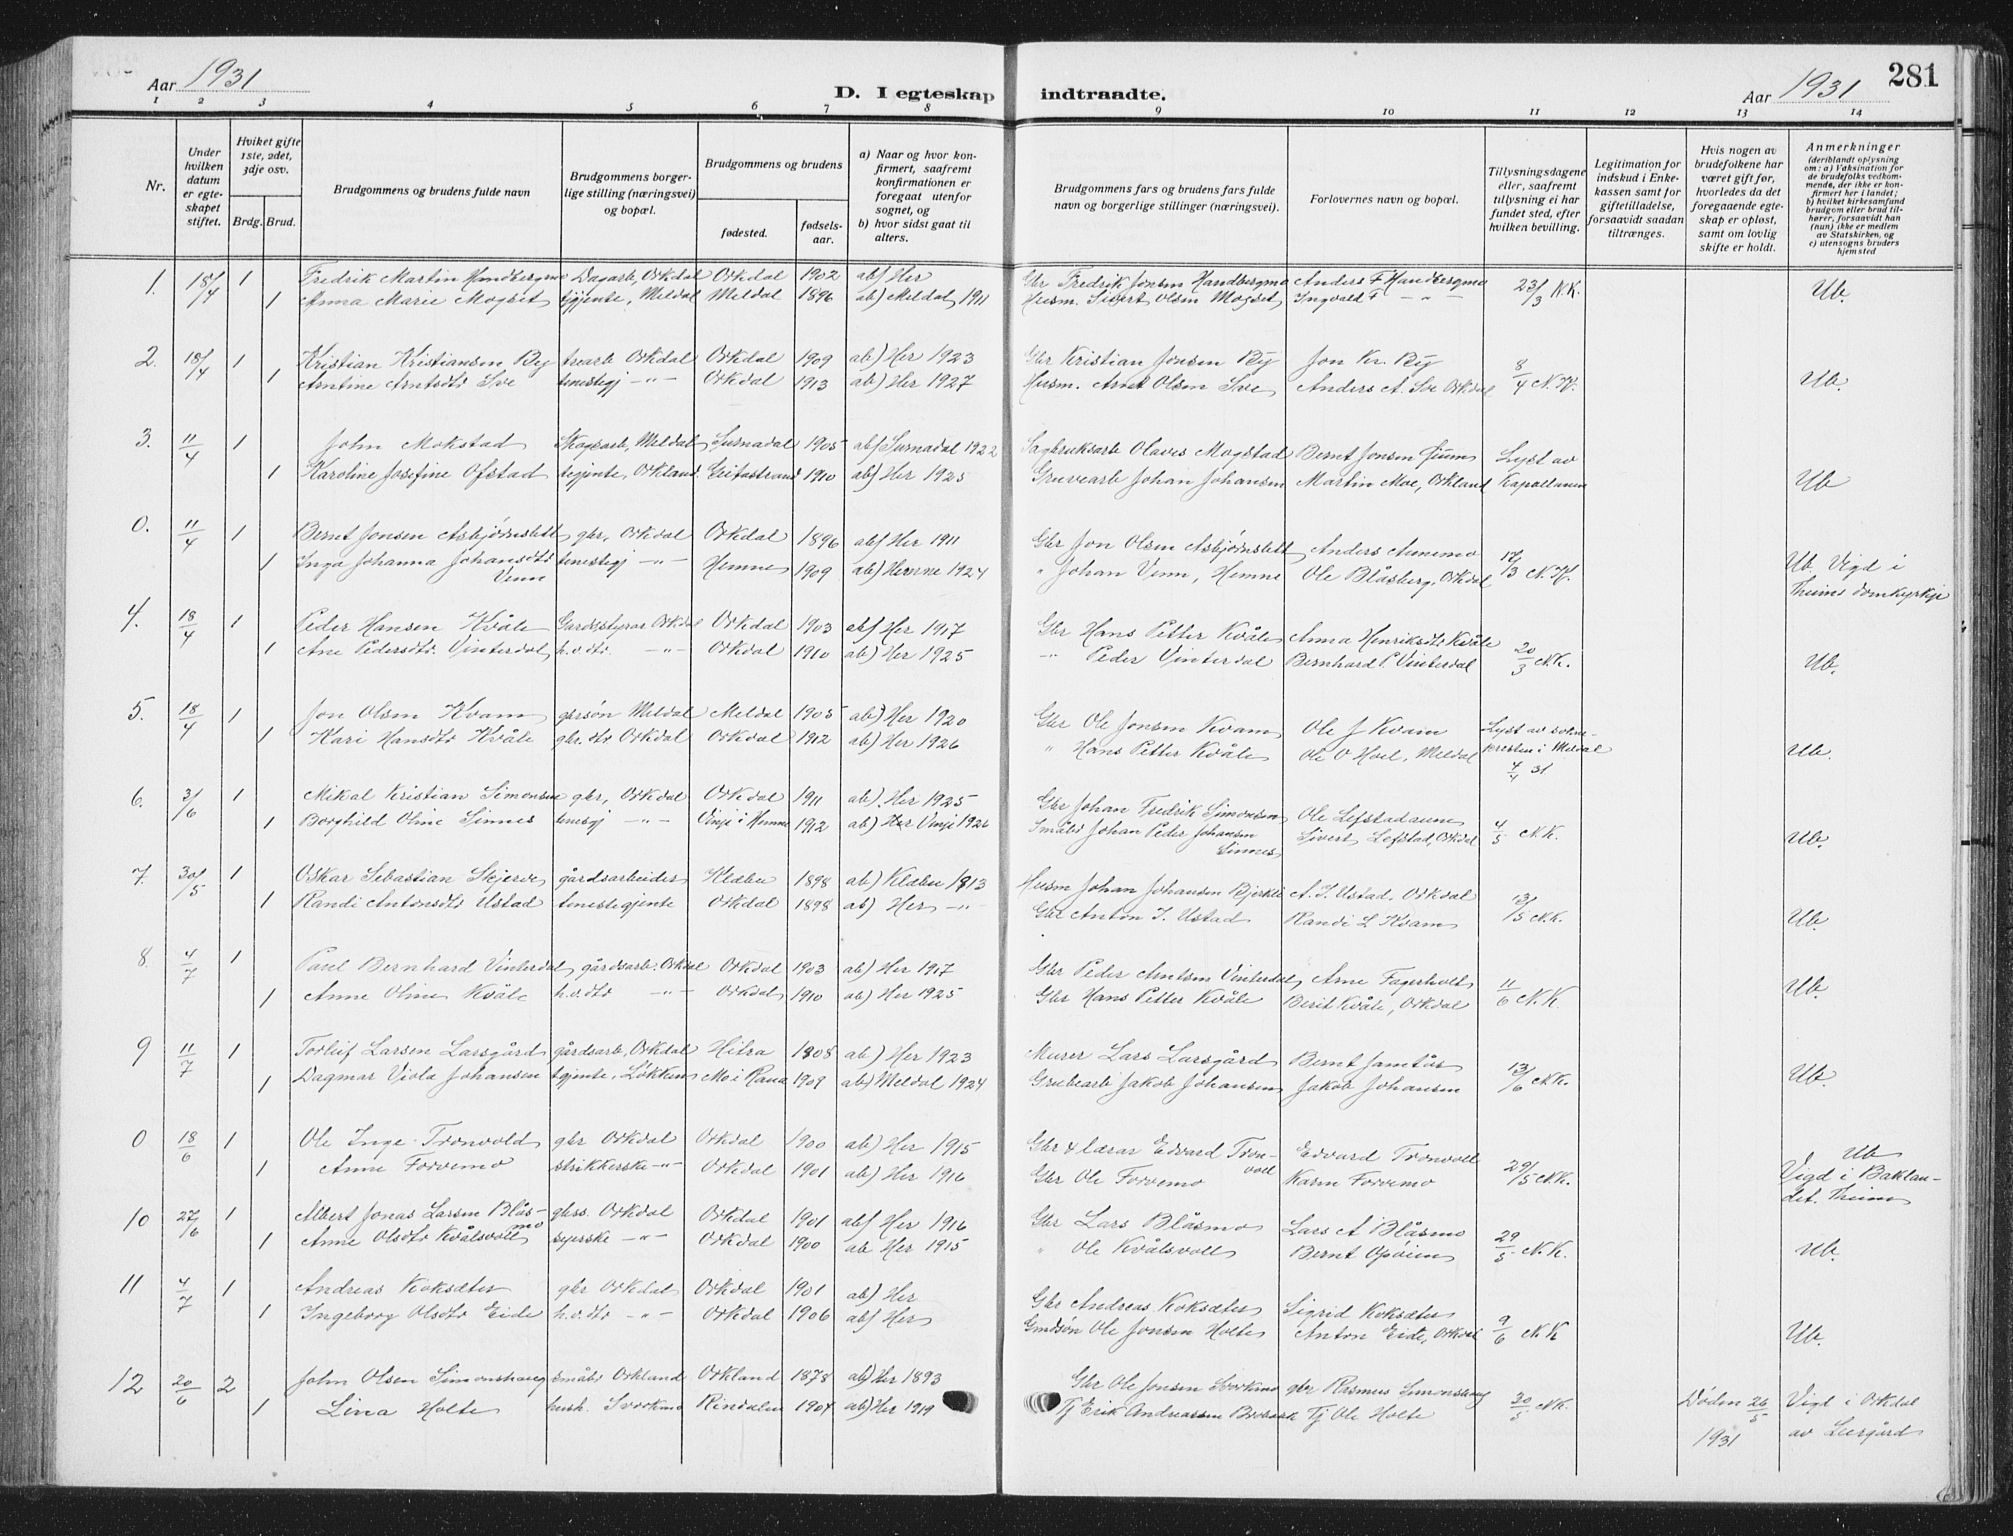 Aar 1931
D. I egteskap indtraadte.
Aar 1931
281
1 2 3 4 5 6 7 8 9 10 11 12 13 14
Nr.
Under hvilken datum er egteskapet stiftet.
Hviket gifte 1ste, 2det, 3dje osv.
Brdg. Brud.
Brudgommens og brudens fulde navn
Brudgommens borgerlige stilling (næringsvei) og bopæl.
Brudgommens og brudens
fødested.
fødselsaar.
a) Naar og hvor konfirmert, saafremt konfirmationen er foregaat utenfor sognet, og
b) hvor sidst gaat til alters.
Brudgommens fars og brudens fars fulde navn og borgerlige stillinger (næringsvei).
Forlovernes navn og bopæl.
Tillysningsdagene eller, saafremt tillysning ei har fundet sted, efter hvilken bevilling.
Legitimation for indskud i Enkekassen samt for giftetilladelse, forsaavidt saadan tiltrænges.
Hvis nogen av brudefolkene har været gift før, hvorledes da det foregaaende egteskap er opløst, samt om lovlig skifte er holdt.
Anmerkninger
(deriblandt oplysning om: a) Vaksination for de brudefolks vedkommende, der ikke er konfirmert her i landet; b) hvilket kirkesamfund brudgom eller brud tilhører, forsaavidt han (hun) ikke er medlem av Statskirken, og c) utensogns bruders hjemsted
1. 18/4 1 Fredrik Martin Handbergmo Dagarb, Orkdal Orkdal 1902 ab) Her Gbr Fredrik Jonsen Handbergmo Anders F Handbergmo 23/3 K.K. Ub.
1 Anna Marie Mogset tjgjente, Meldal Meldal 1896 ab) Meldal, 1911 Husm. Sivert Olsen Mogset, Ingvald F - " -
2. 18/4 1 Kristian Kristiansen By trearb Orkdal Orkdal 1909 ab) Her 1923 Gbr Kristian Jonsen By Jon Kr. By 8/4 N.K. Ub.
1 Arntine Arntsdtr Sve tenestegj -"- Orkdal 1913 ab) Her 1927 Husm. Arnt Olsen Sve Anders A. Sve Orkdal
3. 11/4 1 John Mokstad Skogsarb, Meldal Surnadal 1905 ab) Surnadal 1922 Sagbruksarb Olaves Mogstad Bernt Jonsen Lyst av
1 Karoline Josefine Ofstad tegjente, Orkland Geitastrand 1910 ab) Her 1925 Gruvearb Johan Johansen Martin Moe, Orkland Kapellanen Ub
0. 11/4 1 Bernt Jonsen Asbjørnslett gbr, Orkdal Orkdal 1896 ab) Her 1911 Gbr Jon Olsen Asbjørnslett Anders Aunemo 17/3 N.K.
1 Inga Johanna Johansdtr Venn tenestegj -"- Hemne 1909 ab) Hemne 1924 " Johan Venn, Hemne Ole Blåsberg, Orkdal Ub. Vigd i Theims domkyrkje
4. 18/4 1 Peder Hansen Kvåle Gardsstyrar Orkdal Orkdal 1903 ab) Her 1917 Gbr Hans Petter Kvåle Anna Henriksdtr Kvåle
1 Ane Pedersdtr. Vinterdal h.v.dtr. -"- Orkdal 1910 ab) Her 1925 -"- Peder Vinterdal Bernhard P. Vinterdal 20/3 N.K. Ub.
5. 18/4 1 Jon Olsen Kvam gbrsøn Meldal Meldal 1905 ab) Her 1920 Gbr Ole Jonsen Kvam Ole J Kvam Lyst av sokne-
1 Kari Hansdtr Kvåle gbr. dtr Orkdal Orkdal 1912 ab) Her 1926 " Hans Petter Kvåle Ole O Hoel, Meldal presten i Meldal 4/4 31 Ub.
6. 3/6 1 Mikal Kristian Simonsen gbr, Orkdal Orkdal 1911 ab). Her 1925 Gbr Johan Fredrik Simonsen Ole Lefstadaune
1 Borghild Oline Sinnes tenesgj -"- Vinje i Hemne 1912 ab) Her Vinje 1926 Småbr Johan Peder Johansen Sinnes Sivert Lefstad, Orkdal 4/5 N.K. Ub.
7. 30/5 1 Oskar Sebastian Skjerve gårdsarbeider Klæbu 1898 ab) Klæbu 1913 Husm Johan Johansen Bjerkli A. I. Ustad, Orkdal 13/5 N.K.
1 Randi Antonsdtr Ustad tenestegjente Orkdal 1898 ab) Her -"- Gbr Anton I. Ustad Randi L Kvam Ub.
8 4/7 1 Paul Bernhard Vinterdal gårdsarb. Orkdal Orkdal 1903 ab) Her 1917 Gbr Peder Arntsen Vinterdal Arne Fagerholt 11/6 N.K. Ub.
1 Anne Oline Kvåle h.v.dtr -"- Orkdal 1910 ab) Her 1925 Gbr Hans Petter Kvåle Berit Kvåle, Orkdal
9 11/7 1 Torleif Larsen Larsgård gårdsarb, Orkdal Hitra 1908 ab) Her 1923 Murer Lars Larsgård Bernt Jamtås 13/6 N.K. Ub.
1 Dagmar Viola Johansen tgjente, Løkken Mo i Rana 1909 ab) Meldal 1924 Grubearb Jakob Johansen Jakob Johansen
0 18/6 1 Ole Inge Tronvold gbr Orkdal Orkdal 1900 ab) Her 1915 Gbr & lærar Edvard Tronvoll Edvard Tronvoll 29/5 N.K. Ub
1 Anne Forvemo strikkerske -"- Orkdal 1901 ab) Her 1916 Gbr Ole Forvemo Karen Forvemo Vigd i Baklandet. Theim
10 27/6 1 Albert Jonas Larsen Blåsmo gbss. Orkdal Orkdal 1901 ab) Her 1916 Gbr Lars Blåsmo Lars A Blåsmo 29/5 N.K.
1 Anne Olsdtr Kvålsvoll syerske -"- Orkdal 1900 ab Her 1915 " Ole Kvålsvoll Bernt Opøien Ub.
11 4/7 1 Andreas Koksæter gbr Orkdal Orkdal 1901 ab) Her Gbr Andreas Koksæter Sigrid Koksæter 9/6 N.K
1 Ingeborg Olsdtr Eide h.v.dtr -"- Orkdal 1906 ab) Her Grndsøn Ole Jonsen Holte Anton Eide, Orkdal Ub.
12 20/6 2 John Olsen Simonshaug småbr Orkland Orkland 1878 ab) Her 1893 Gbr Ole Jonsen Svorkmo gbr Rasmus Simonshaug 30/5 N.K. Døden 26/5 1931 Vigd i Orkdal
1 Lina Holte hush. Svorkmo Rindalen 1904 ab) Her 1919 Tj Erik Andreassen Tj Ole Holte av Leergård